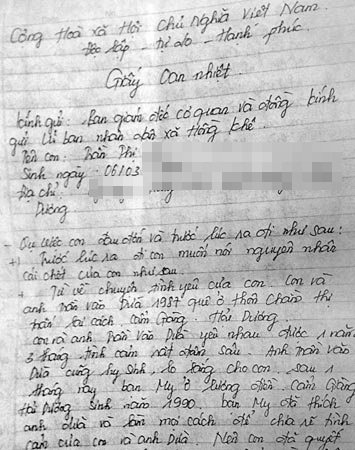 Cộng Hoà xã Hội Chủ Nghĩa Việt Nam.
Độc lập - Tự do - Hạnh phúc.
Giấy Oan nhiệt.
kính gửi: ban giám đốc cơ quan và đồng kính
gửi Uỷ ban nhân dân xã Hồng khê.
Tên con: Trần Thị
Sinh ngày: 06/03
Địa chỉ:
Dương
- con đau đớn và trước lúc ra đi như sau:
+) Trước lúc ra đi con muốn nói nguyên nhân
cái chết của con như sau
+ Tự về chuyện tình yêu của con. Con và
anh Trần văn Duà 1987 quê ở thôn Chằm thị
trấn lai cách cẩm Giàng. Hải Dương.
con và anh Trần văn Duà yêu nhau được 1 năm
3 tháng tình cảm rất đậm sâu. Anh Trần văn
Duà cũng hy sinh lo lắng cho con. sau 1
tháng này bạn My ở Lương điền Cẩm Giàng
Hải Dương sinh năm 1990. bạn My đã thích
anh duà và tìm mọi cách để chia rẽ tình
cảm của con và anh Duà. Nên con đã quyết